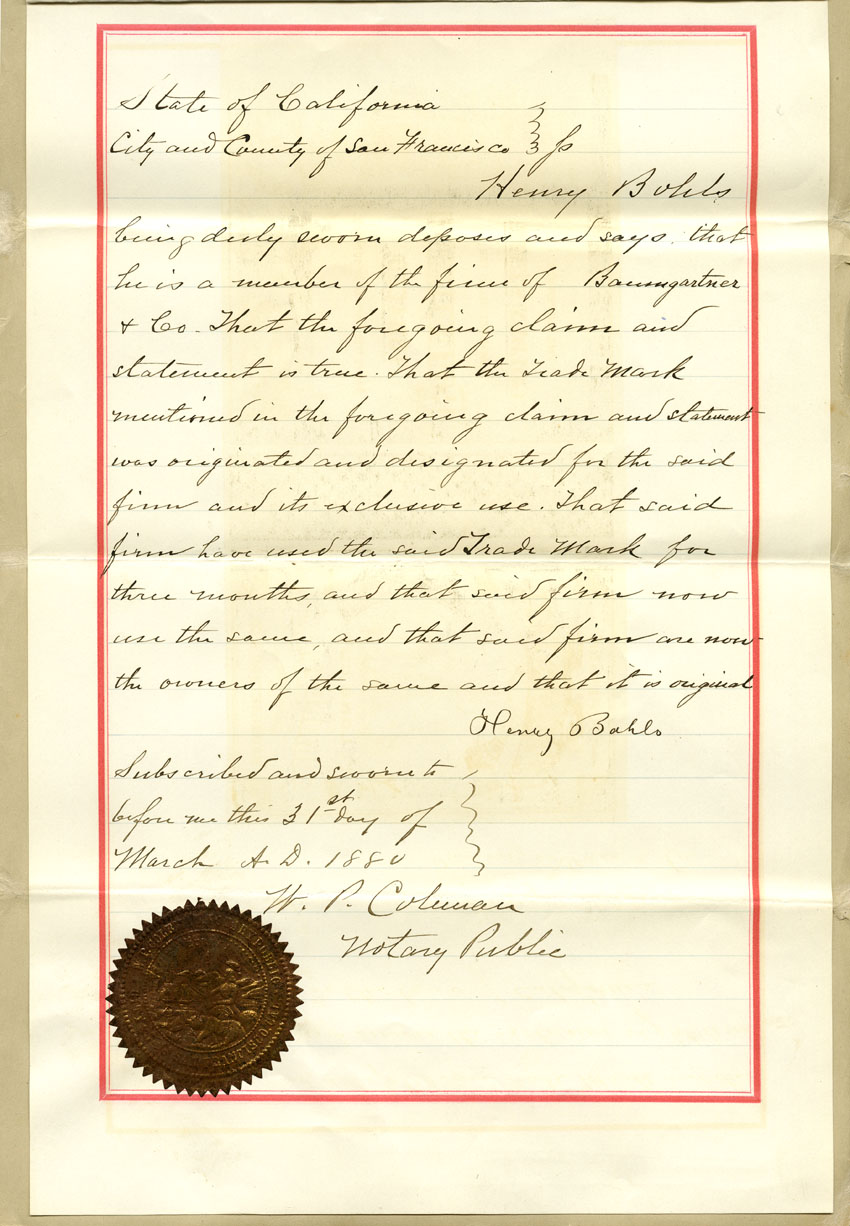 State of California
City and County of San Francisco } ss
Henry Bohls
being duly sworn deposes and says that
he is a member of the firm of Baumgartner
& Co. That the foregoing claim and
statement is true. That the Trade Mark
mentioned in the foregoing claim and statement
was originated and designated for the said
firm and its exclusive use. That said
firm have used the said Trade Mark for
three months, and that said firm now
use the same, and that said firm are now
the owners of the same and that it is original
Henry Bohls
Subscribed and sworn to
before me this 31st day of
March A.D. 1880
W. P. Coleman
Notary Public